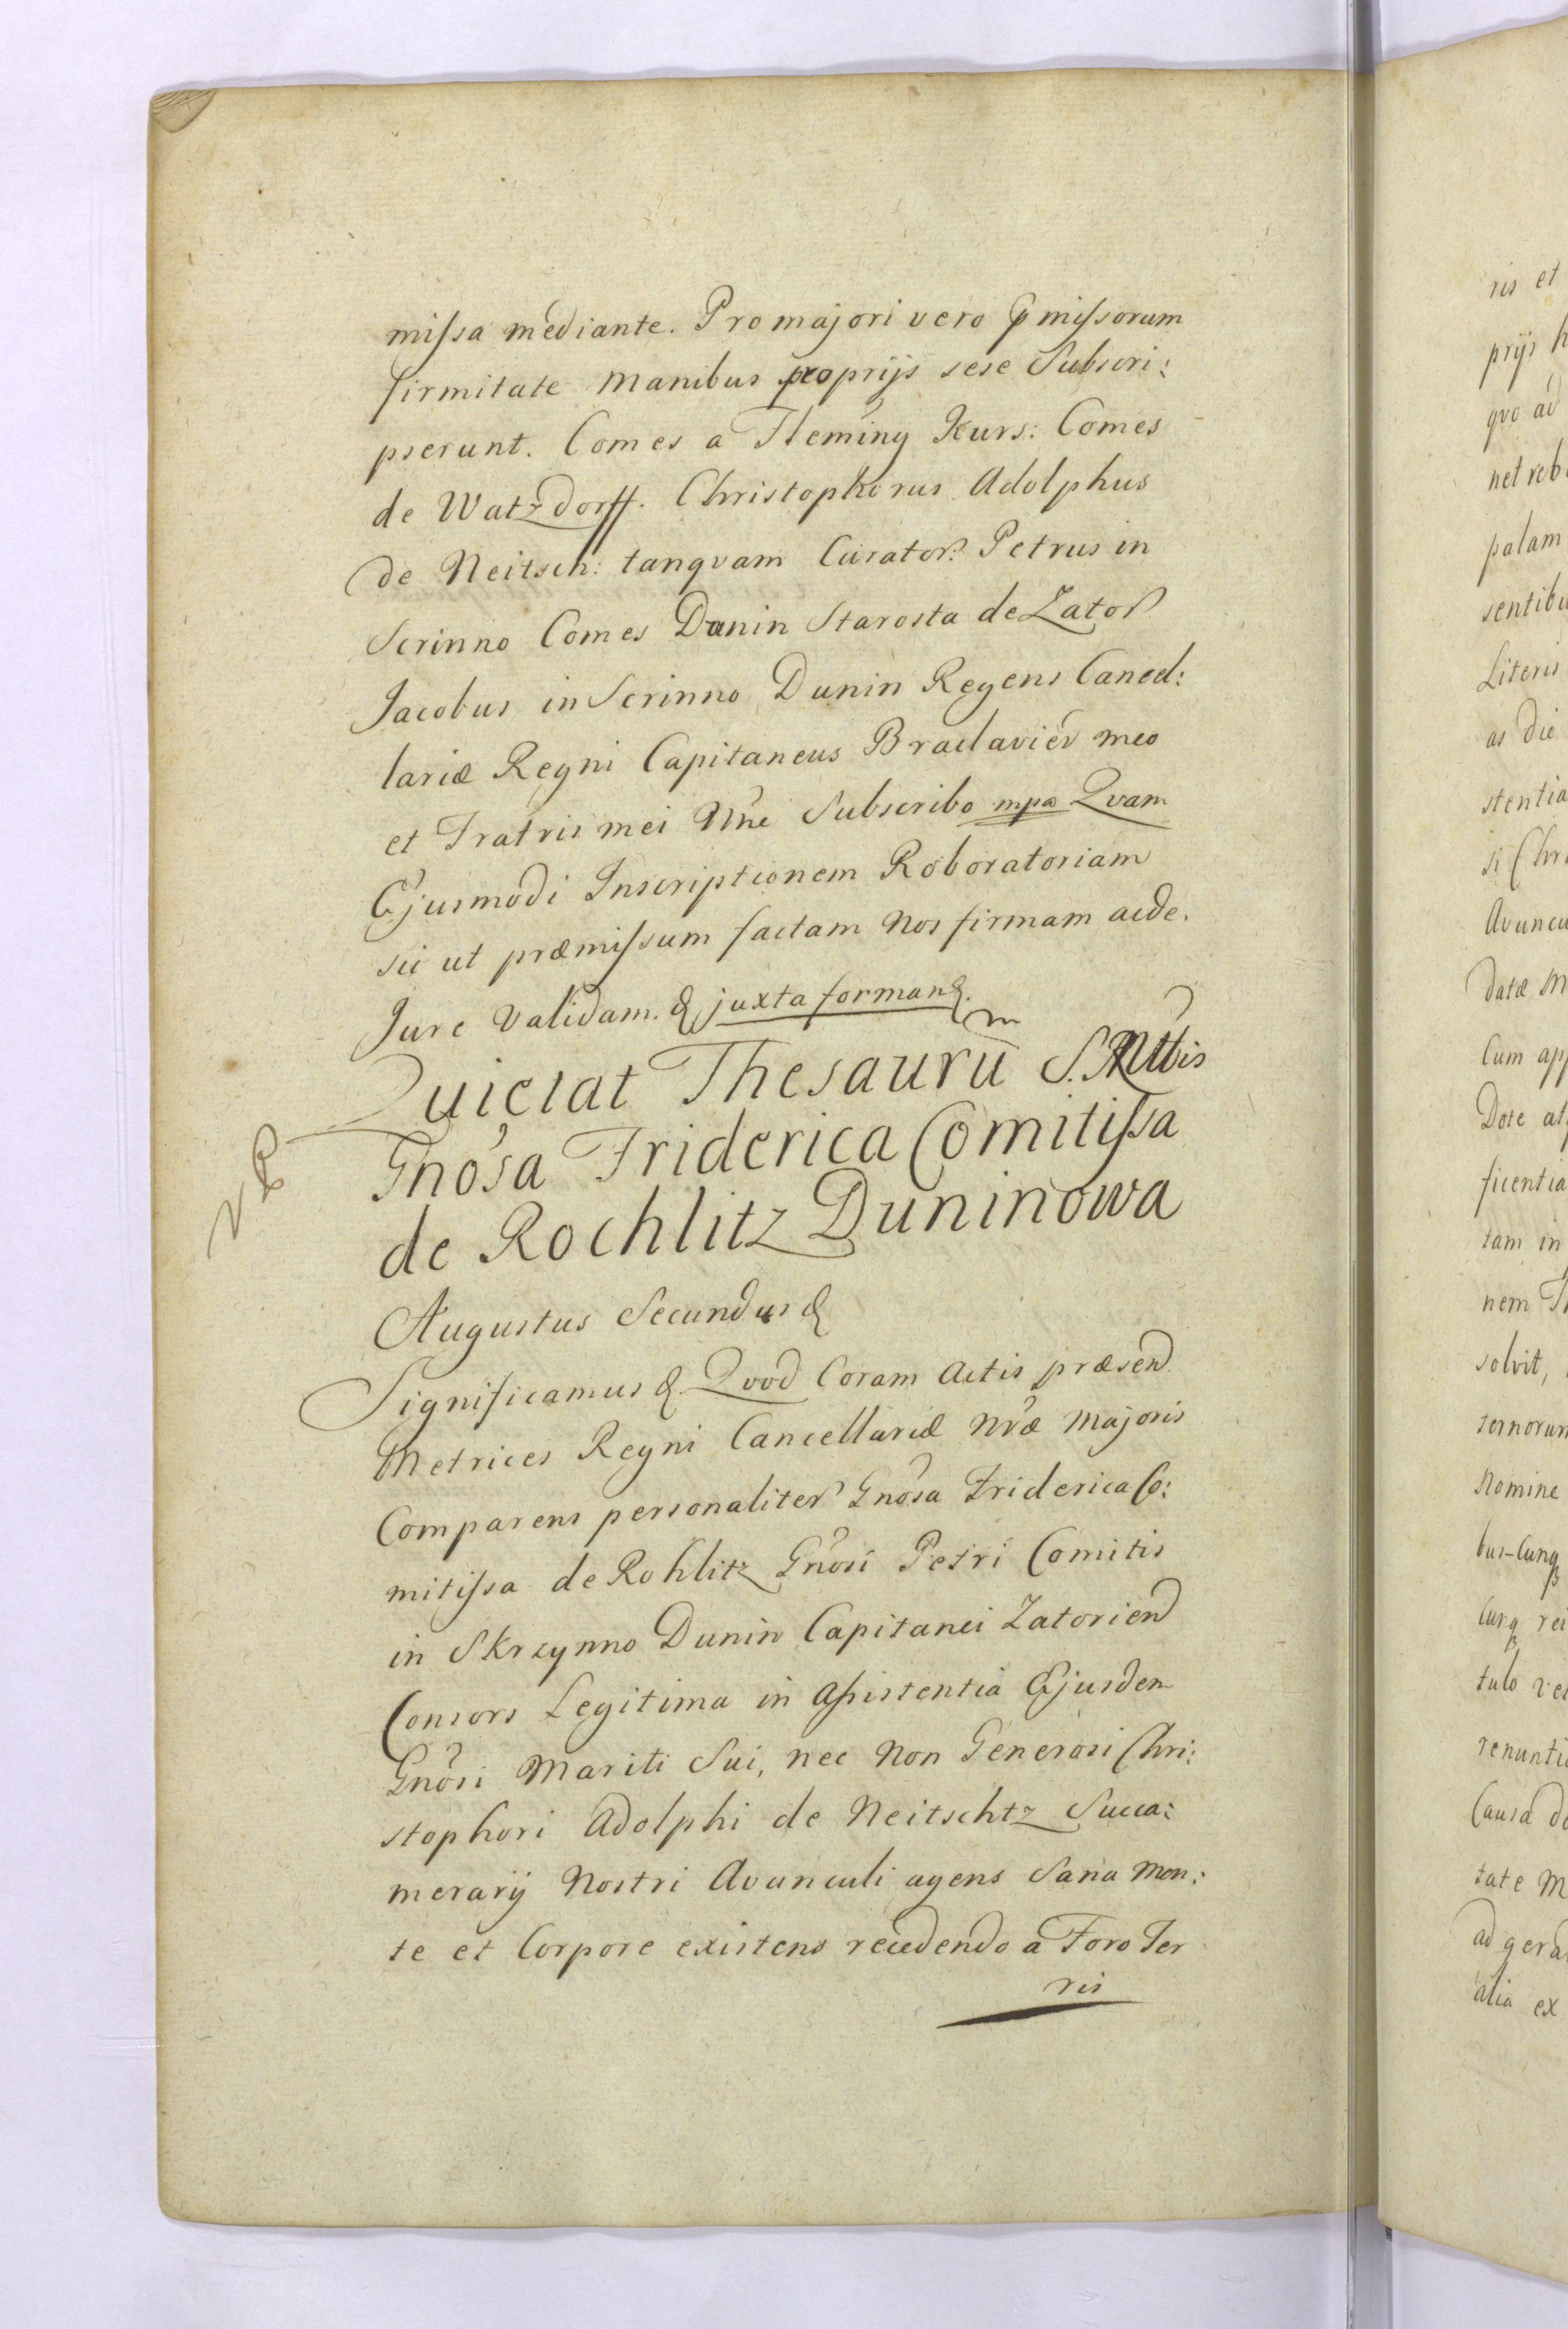 missa mediante. Pro majori vero pmissorum
firmitate manibus proprijs sese Subscri:
pserunt. Comes a Fleming Kurs: Comes
de Watzdorff. Christophorus Adolphus
de Neitsch: tanqvam Curator. Petrus in
Scrinno Comes Dunin Starosta de Zator
Jacobus in Scrinno Dunin Regens Cancel:
lariæ Regni Capitaneus Braclavien meo
et Fratris mei Nne Subscribo mpa Qvam
Ejusmodi Inscriptionem Roboratoriam
sic ut præmissum factam Nos firmam ac de.
Jure validam. & juxta forman &.
Quietat Thesaurū S. R
Gnosa Friderica Comitissa
de Rochlitz Duninowa
Augustus Secundus &
Significamus & Qvod Coram Actis præsen
Metrices Regni Cancellariæ Nræ Majoris
Comparens personaliter Gnosa Friderica Co:
mitissa de Rohlitz Gnosi Petri Comitis
in Skrzynno Dunin Capitanei Zatorien
Consors Legitima in Assistentia Ejusdem
Gnosi Mariti Sui, nec non Generosi Chri:
stophori Adolphi de Neitschtz Succa:
merarij Nostri Avunculi agens Sana Men:
te et Corpore existens recedendo a Foro Ter
ris
ris et
prijs
qvo ad
net
palam
sentibu
Literis
as die
stentia
si Chri
Avuncu
datæ M
Cum app
Dote
ficentia
tam in
nem
solvit,
ternorum
Nomine
bus-Cunq
Cunq rei
tulo
renuntia
Causa
tate M
ad
alia ex